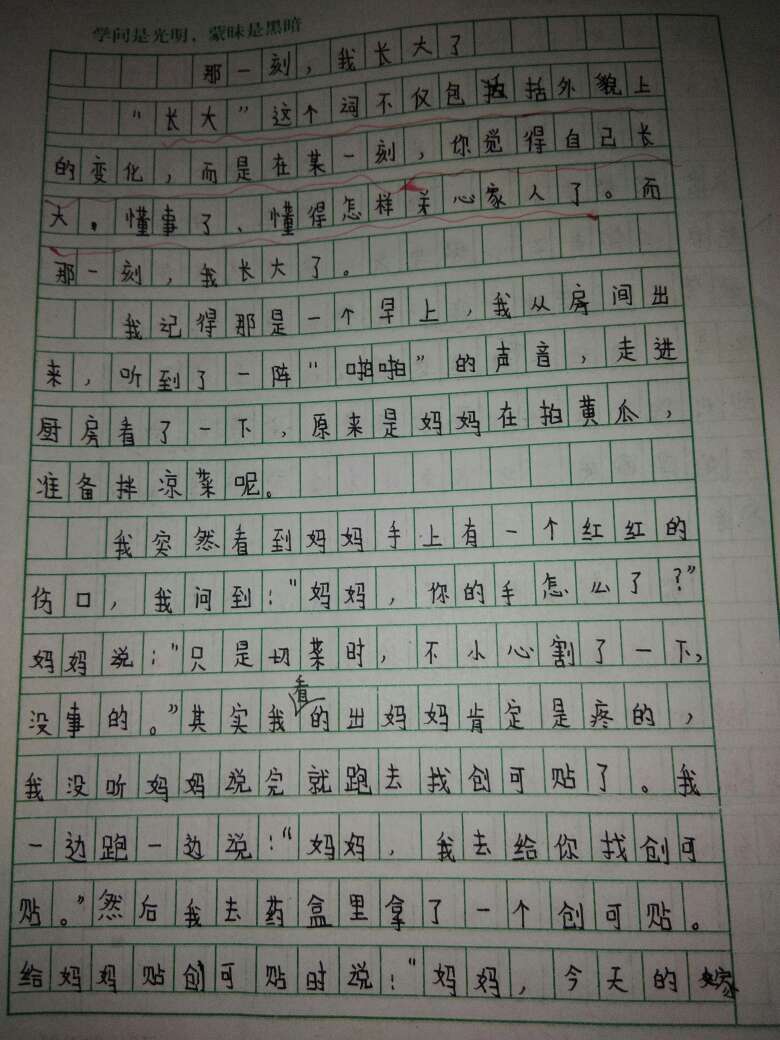 学问是光明，蒙昧是黑暗
那一刻，我长大了
“长大”这个词不仅包括外貌上
的变化，而是在某一刻，你觉得自己长
大。懂事了、懂得怎样关心家人了。而
那一刻，我长大了。
我记得那是一个早上，我从房间出
来，听到了一阵“啪啪”的声音，走进
厨房看了一下，原来是妈妈在拍黄瓜，
准备拌凉菜呢。
我突然看到妈妈手上有一个红红的
伤口，我问到：“妈妈，你的手怎么了？”
妈妈说：“只是切菜时，不小心割了一下，
没事的。”其实我看的出妈妈肯定是疼的，
我没听妈妈说完就跑去找创可贴了。我
一边跑一边说：“妈妈，我去给你找创可
贴。”然后我去药盒里拿了一个创可贴。
给妈妈贴创可贴时说：“妈妈，今天的